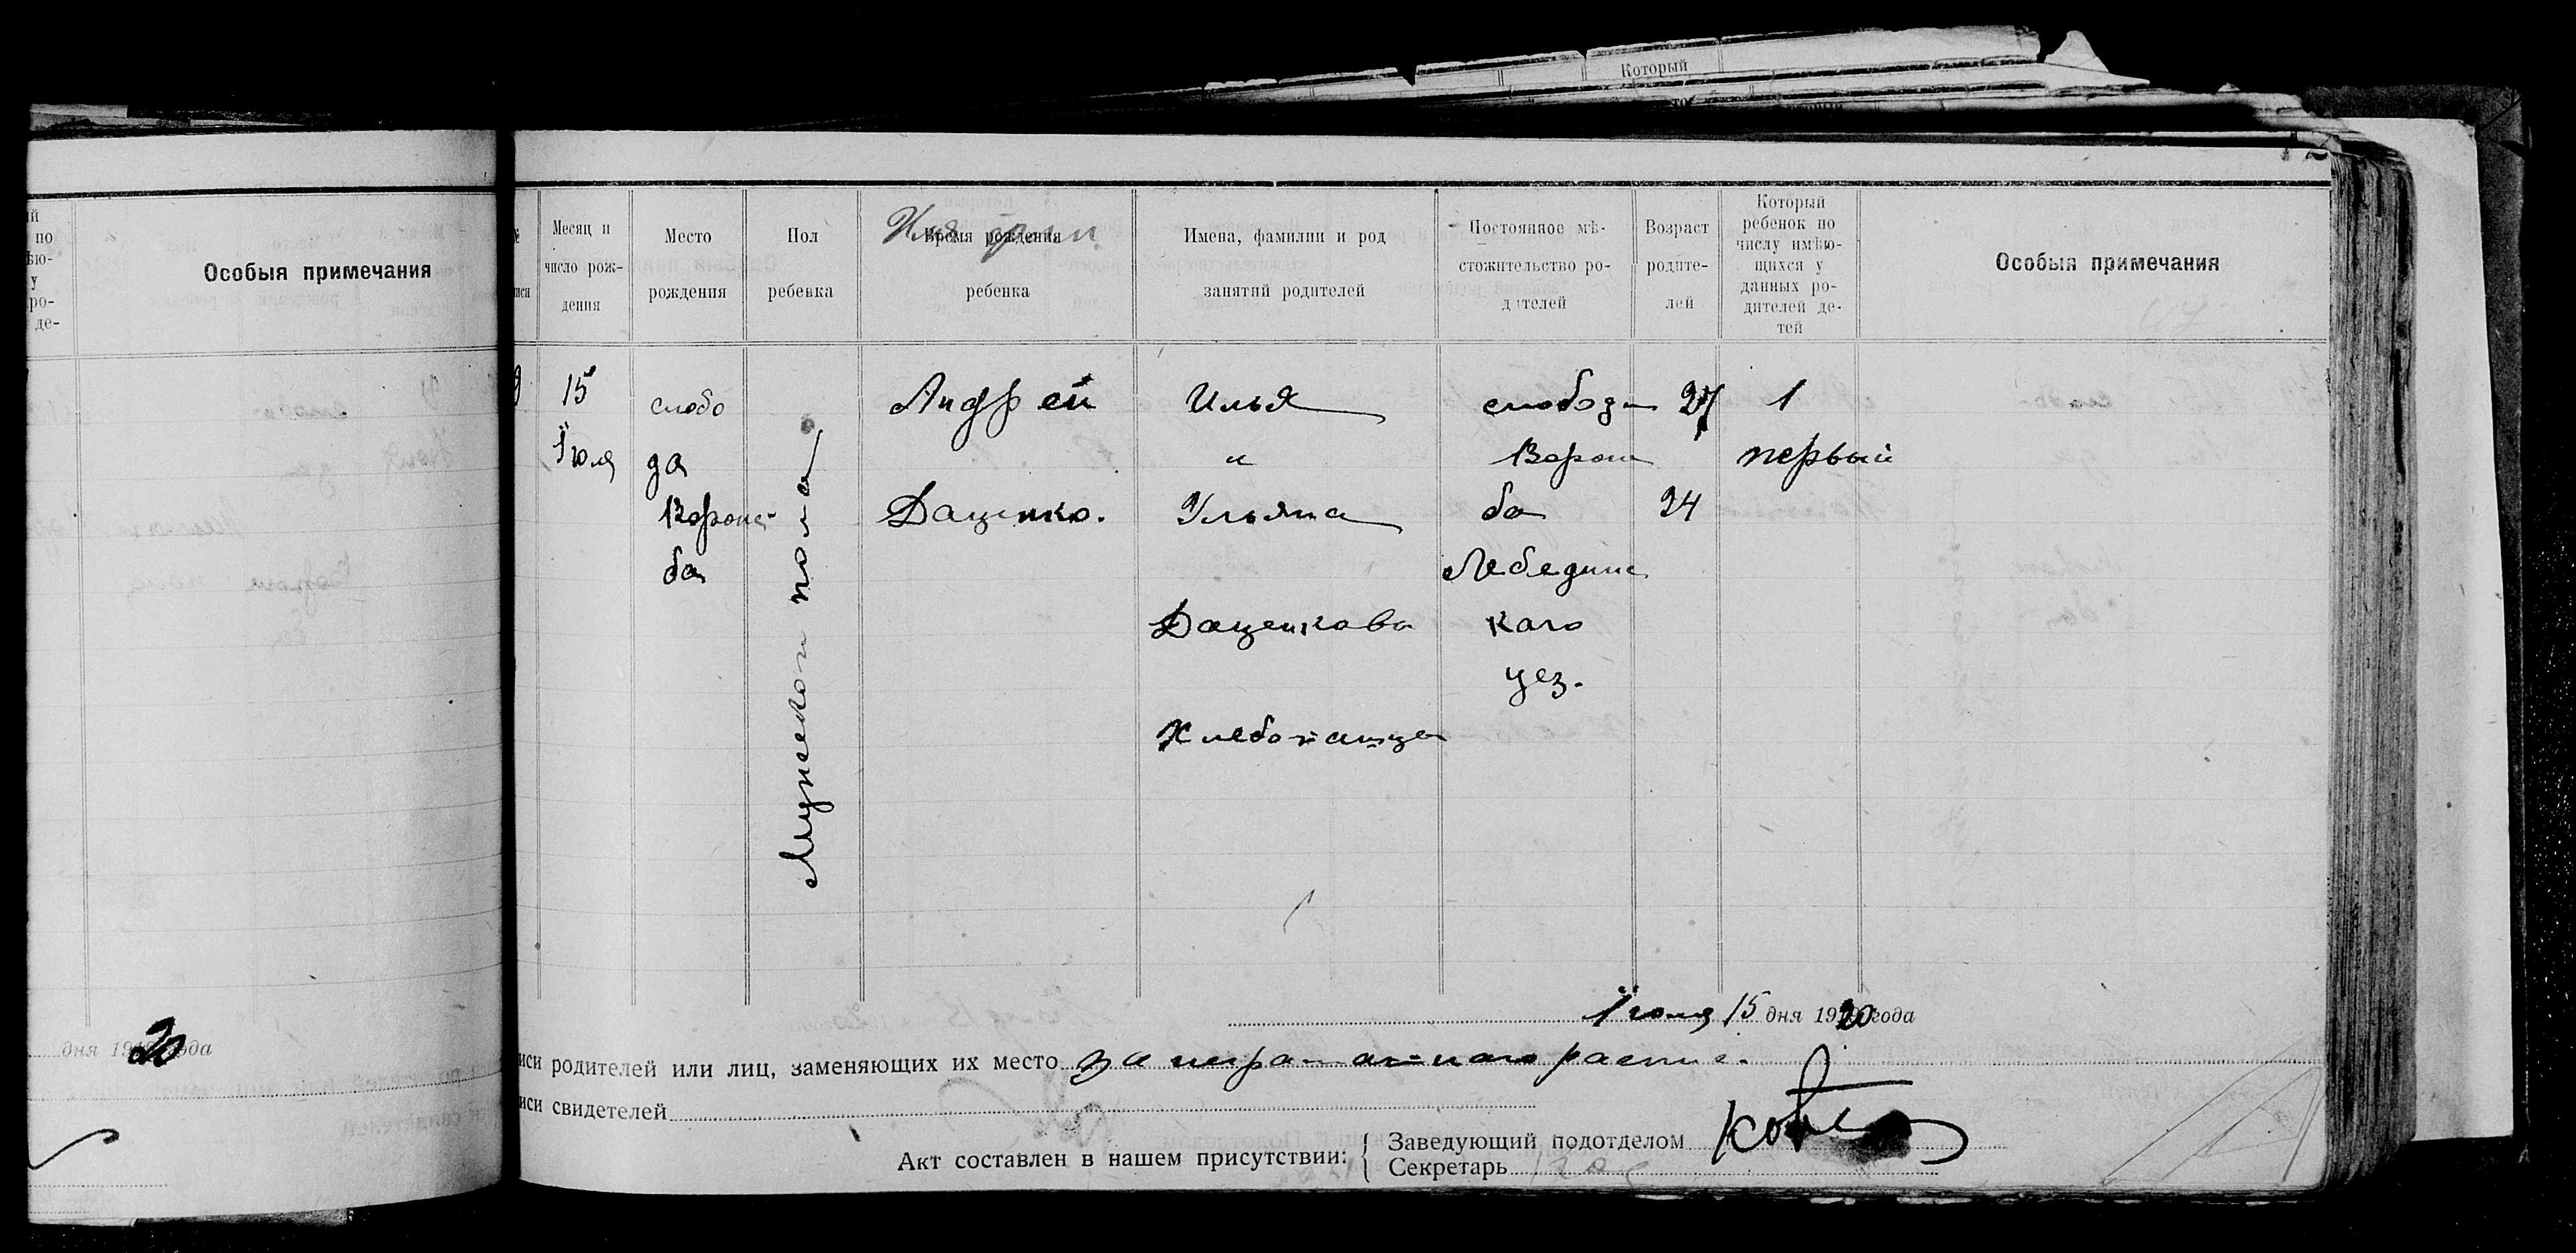 Который
й
по
ѣю-
у
ро-
де-
Особыя примечания
дня 1920 года
№
иси
Месяц и
число рож-
дения
Место
рождения
Пол
ребенка
Время рождения
ребенка
Имя
Имена, фамилии и род
занятий родителей
Постоянное мѣ-
стожительство ро-
дителей
Возраст
родите-
лей
Который
ребенок по
числу имѣю-
щихся у
данных ро-
дителей де-
тей
Особыя примечания
15
Іюля
слобо
да
Ворож
ба
Мужской пола
Андрей
Даценко.
Илья
и
Ульяна
Даценкова
Хлебопашца
слобода
Ворож
ба
Лебединс
каго
уез.
27
24
1
первый
Іюля 15 дня 1920 года
иси родителей или лиц, заменяющих их место за неграмотнаго распис.
иси свидетелей
Акт составлен в нашем присутствии:
Заведующий подотделом
Секретарь